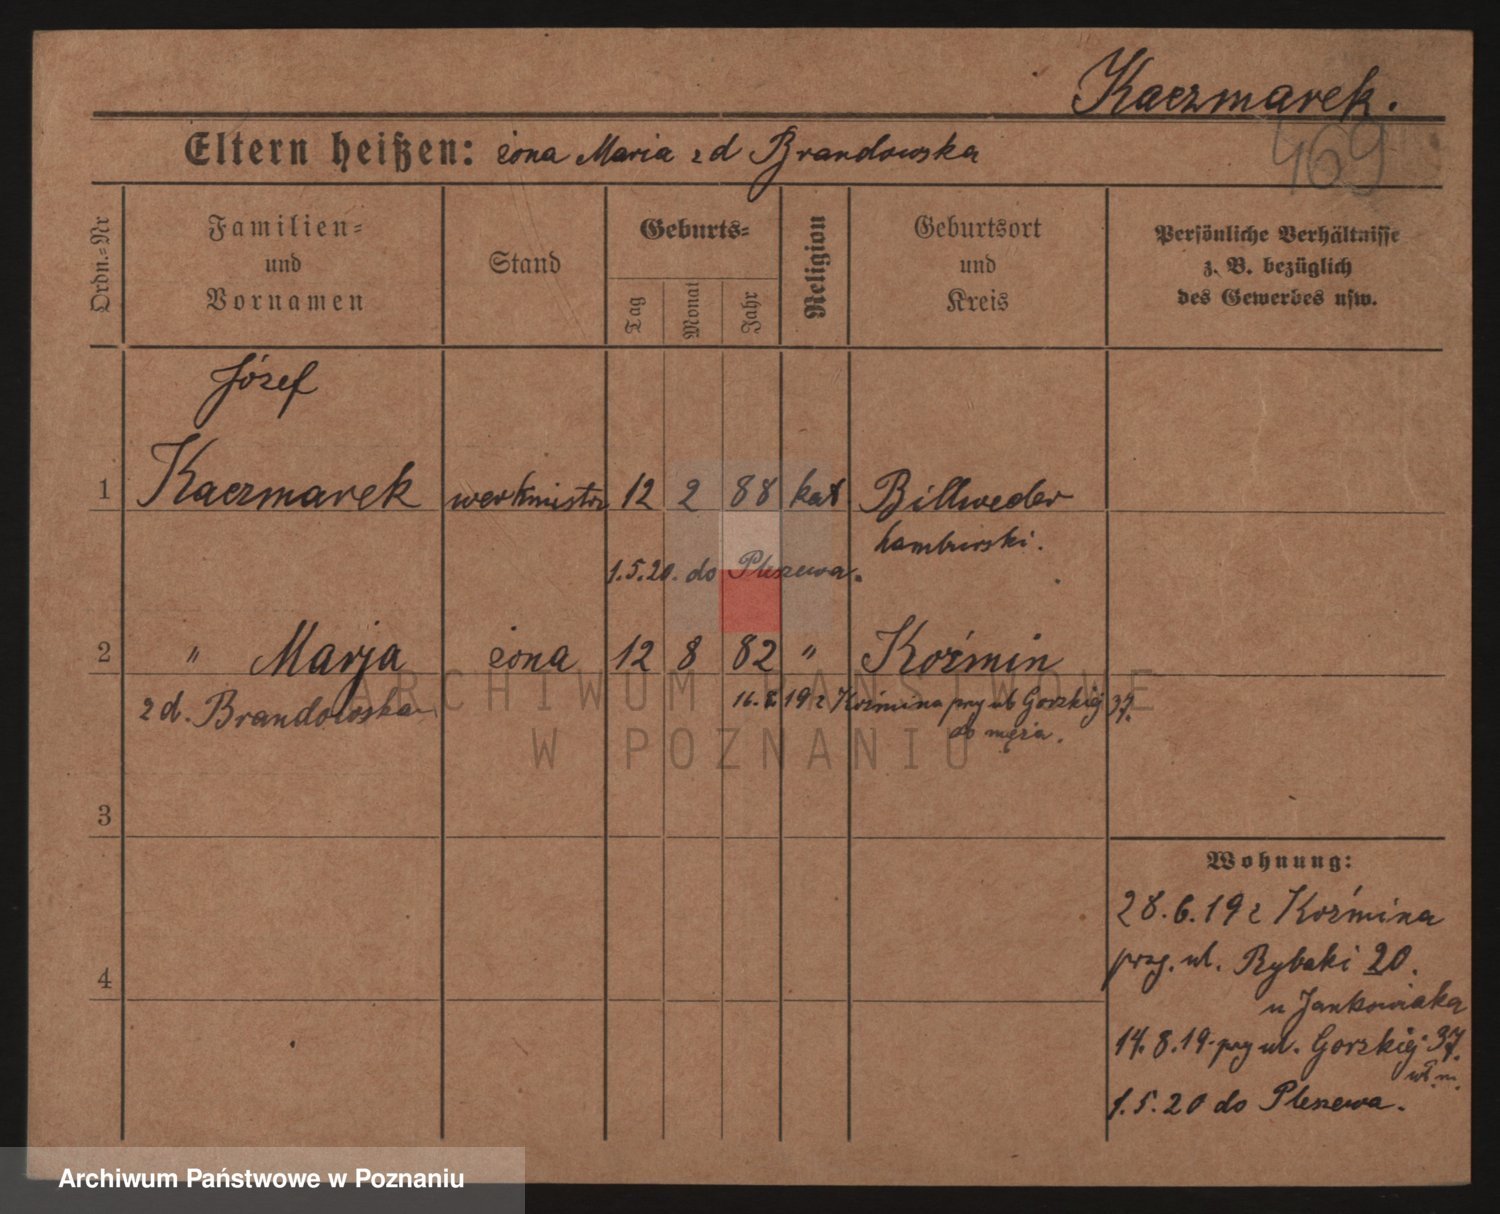 Kaczmarek.
469
Eltern heißen: żona Maria z d Brandowska
Ordn.-Nr
Familien-
und
Vornamen
Stand
Geburts-
Tag
Monat
Jahr
Religion
Geburtsort
und
Kreis
Persönliche Verhältnisse
z. B. bezüglich
des Gewerbes usw.
Józef
1 Kaczmarek werkmistrz 12 2 88 kat Billweder
hamburski.
1.5.20. do Pleszewa.
2 " Marja żona 12 8 82 " Koźmin
z d. Brandowska
16.8.19 z Koźmina przy ul Gorzkiej 37.
do męża.
3
4
Wohnung:
28.6.19 z Koźmina
przy. ul. Rybaki 20.
u Jankowiaka
14.8.19. przy ul. Gorzkiej 37.
wł. m.
1.5.20 do Pleszewa.
ARCHIWUM PAŃSTWOWE
W POZNANIU
Archiwum Państwowe w Poznaniu